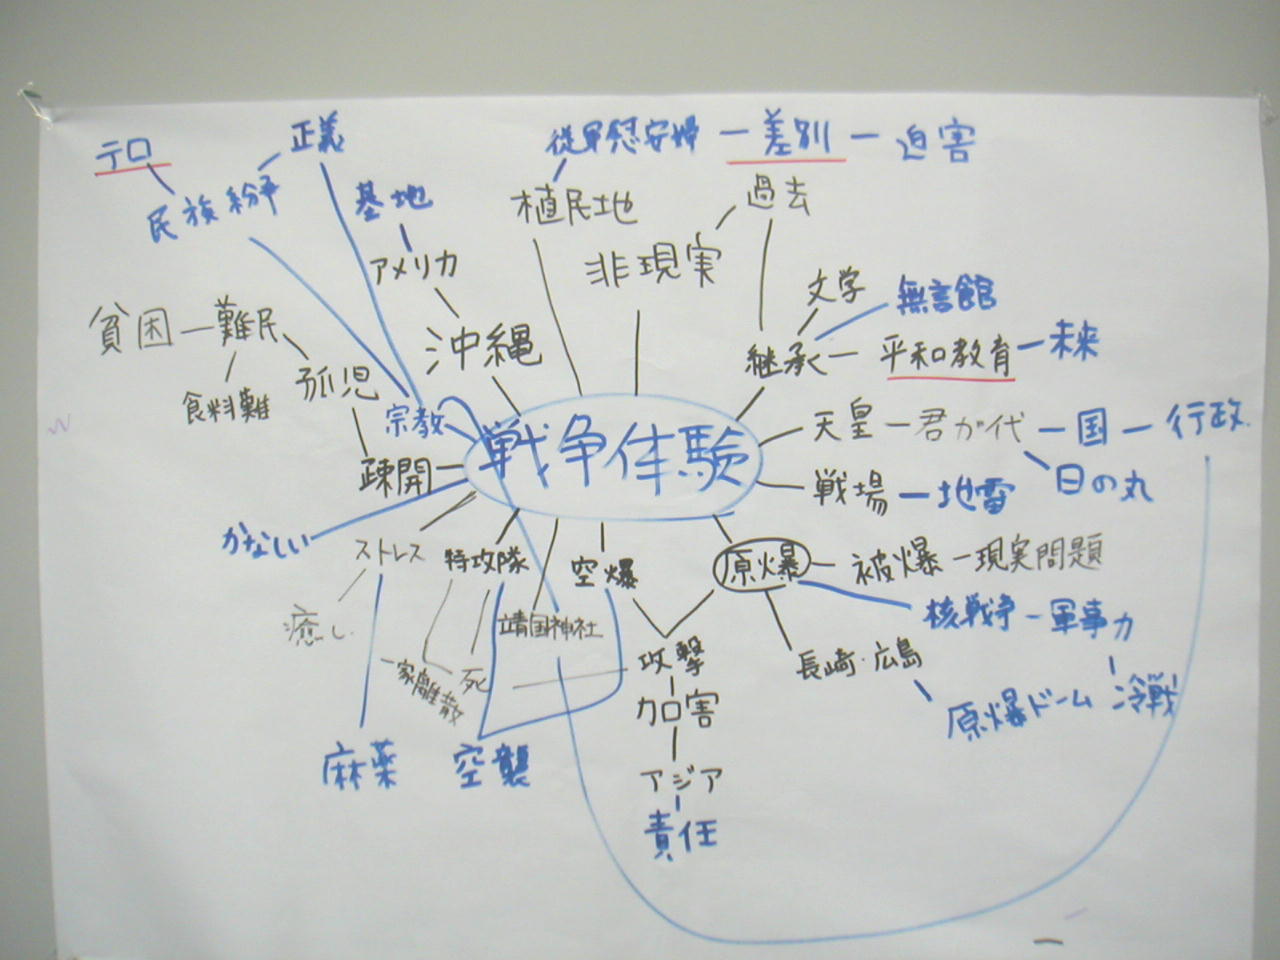 テロ
正義
民族紛争
従軍慰安婦 ー 差別 ー 迫害
基地
植民地
過去
アメリカ
非現実
文学
無言館
貧困 ー 難民
沖縄
継承 ー 平和教育 ー 未来
食料難
孤児
宗教
戦争体験
天皇 ー 君が代 ー 国 ー 行政
疎開
戦場 ー 地雷
日の丸
かなしい
ストレス
特攻隊
空爆
原爆 ー 被爆 ー 現実問題
癒し
靖国神社
核戦争 ー 軍事力
一家離散
死
攻撃
長崎・広島
加害
原爆ドーム
冷戦
麻薬
空襲
アジア
責任